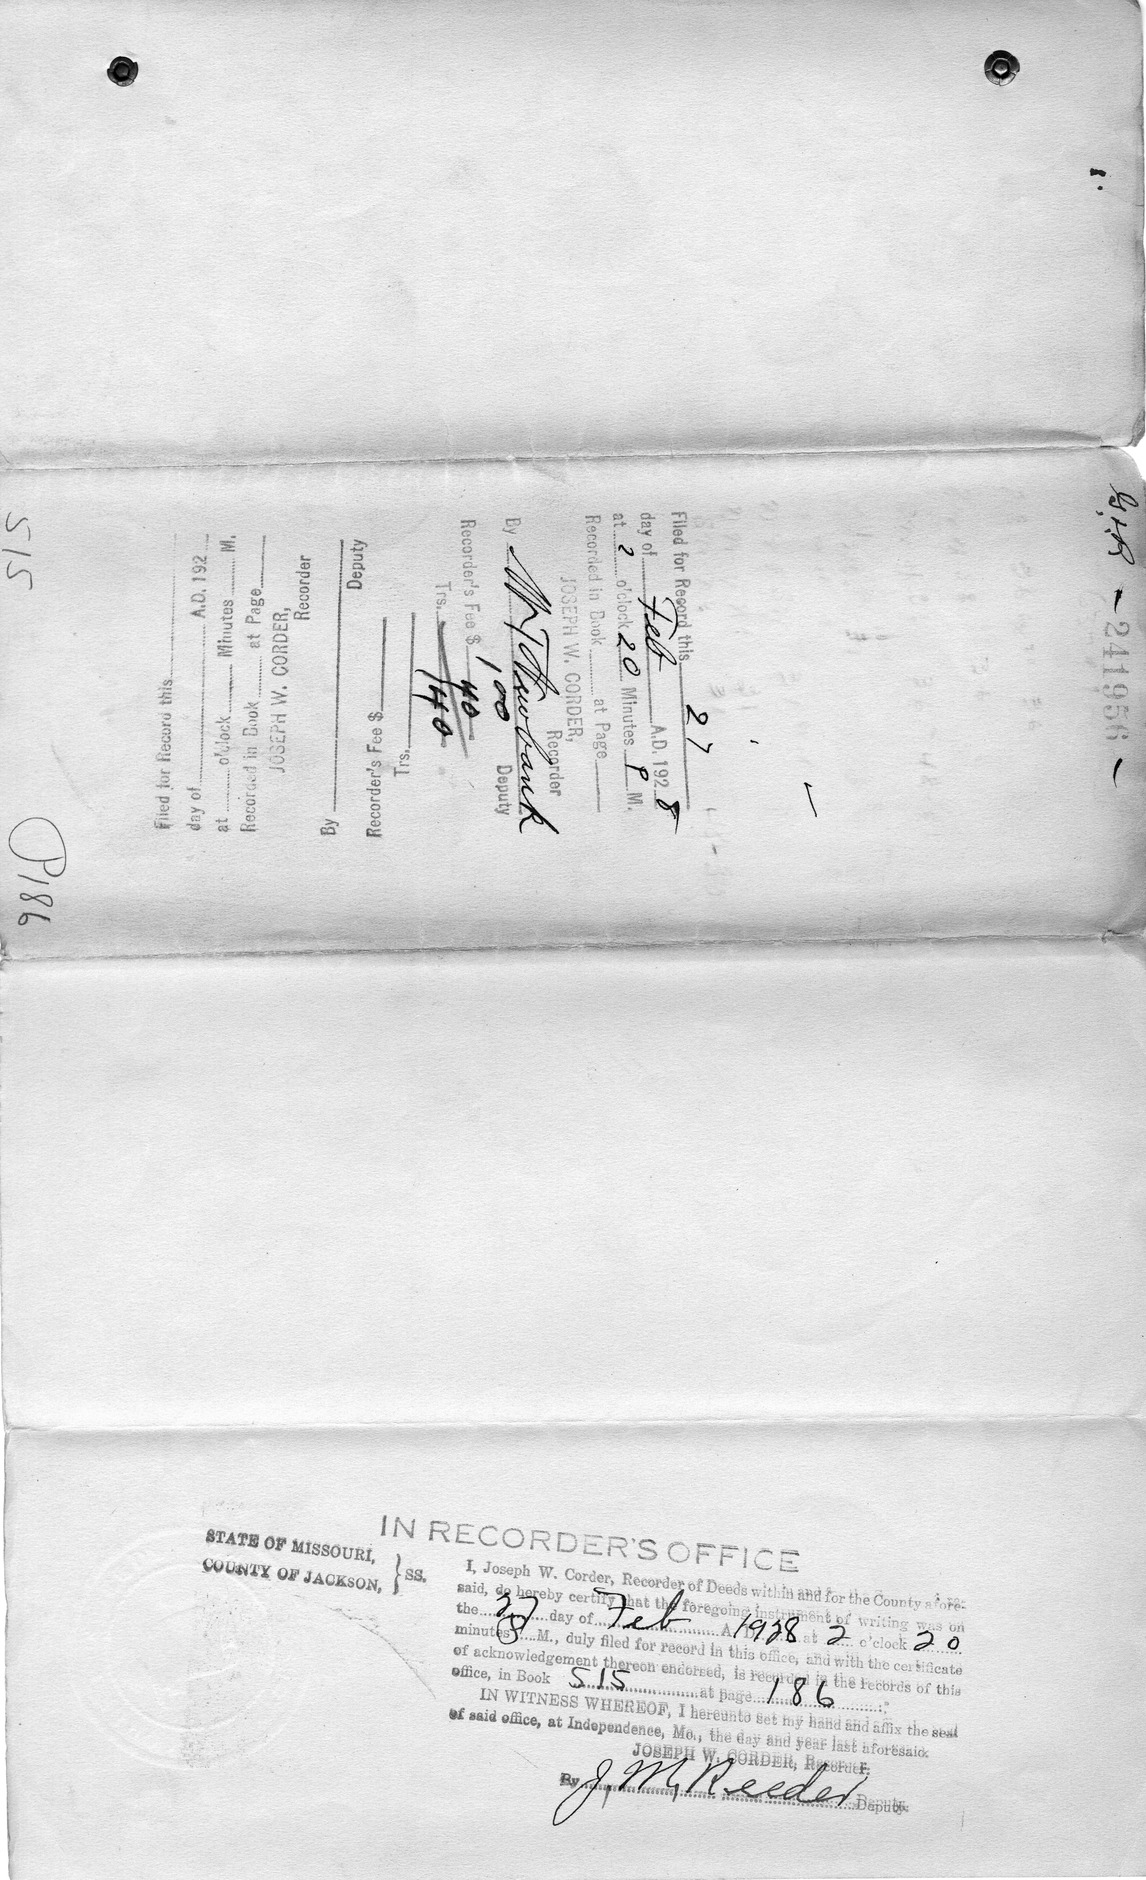 G.H.R. - 241956 -
Filed for Record this 27
day of Feb A.D. 192 8
at 2 o'clock 20 Minutes P M.
Recorded in Book at Page
JOSEPH W. CORDER,
Recorder
By Deputy
Recorder's Fee $ 1 00
40
Trs. 1 40
Filed for Record this
day of A.D. 192
at o'clock Minutes M.
Recorded in Book at Page
JOSEPH W. CORDER,
Recorder
By Deputy
Recorder's Fee $
Trs.
515
P186
IN RECORDER'S OFFICE
STATE OF MISSOURI,
COUNTY OF JACKSON, } SS.
I, Joseph W. Corder, Recorder of Deeds within and for the County afore-
said, do hereby certify that the foregoing instrument of writing was on
the 27 day of Feb A.D. 1928 at 2 o'clock 20
minutes P M., duly filed for record in this office, and with the certificate
of acknowledgement thereon endorsed, is recorded in the records of this
office, in Book 515 at page 186
IN WITNESS WHEREOF, I hereunto set my hand and affix the seal
of said office, at Independence, Mo., the day and year last aforesaid.
JOSEPH W. CORDER, Recorder.
By J. M. Reeder Deputy.